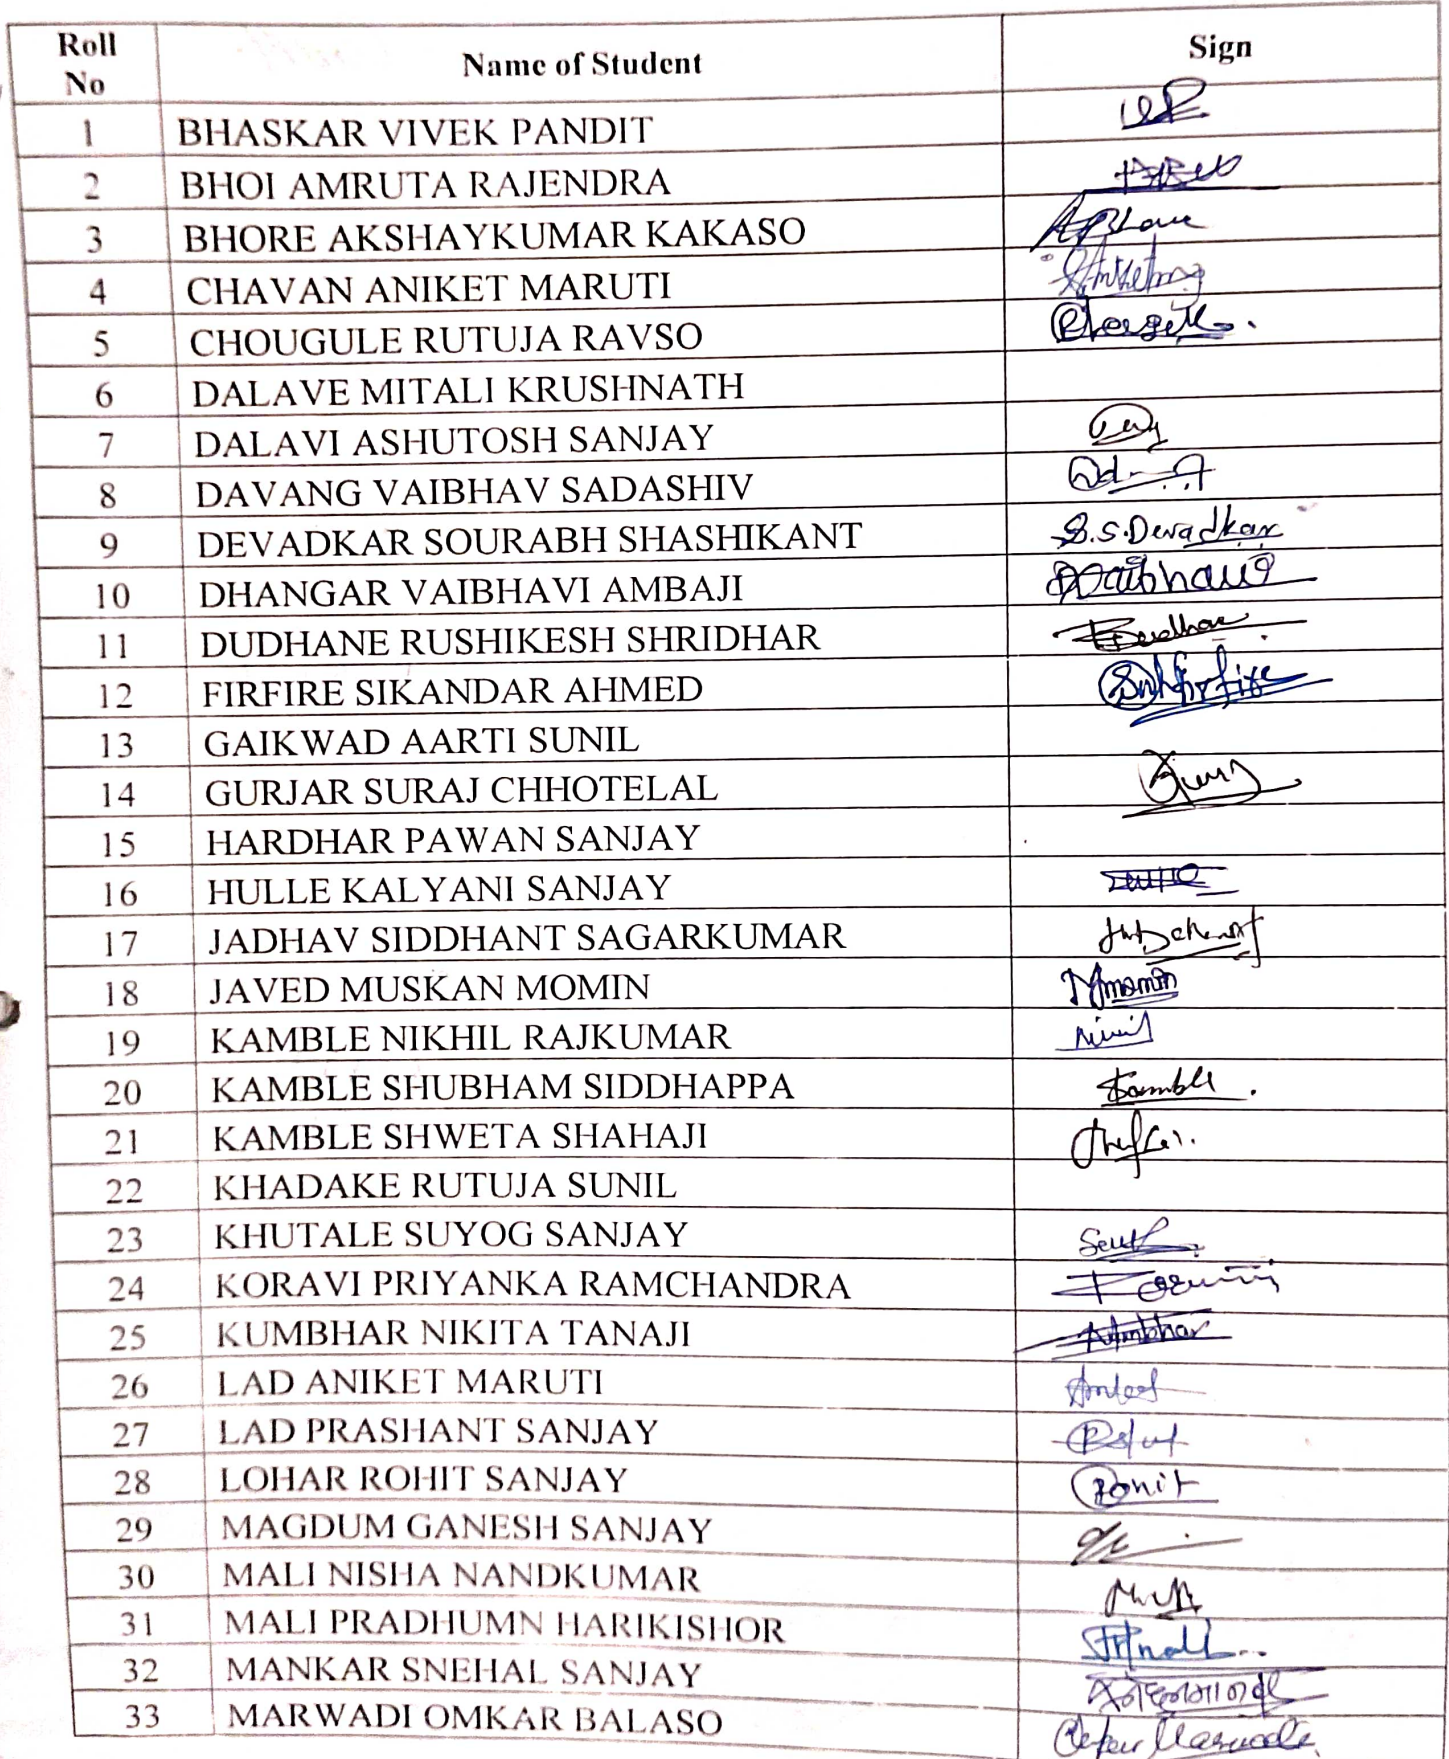 Roll No Name of Student Sign
1 BHASKAR VIVEK PANDIT
2 BHOI AMRUTA RAJENDRA
3 BHORE AKSHAYKUMAR KAKASO
4 CHAVAN ANIKET MARUTI
5 CHOUGULE RUTUJA RAVSO
6 DALAVE MITALI KRUSHNATH
7 DALAVI ASHUTOSH SANJAY
8 DAVANG VAIBHAV SADASHIV
9 DEVADKAR SOURABH SHASHIKANT S.S.Devadkar
10 DHANGAR VAIBHAVI AMBAJI
11 DUDHANE RUSHIKESH SHRIDHAR
12 FIRFIRE SIKANDAR AHMED
13 GAIKWAD AARTI SUNIL
14 GURJAR SURAJ CHHOTELAL
15 HARDHAR PAWAN SANJAY
16 HULLE KALYANI SANJAY
17 JADHAV SIDDHANT SAGARKUMAR
18 JAVED MUSKAN MOMIN Mmomin
19 KAMBLE NIKHIL RAJKUMAR
20 KAMBLE SHUBHAM SIDDHAPPA
21 KAMBLE SHWETA SHAHAJI
22 KHADAKE RUTUJA SUNIL
23 KHUTALE SUYOG SANJAY
24 KORAVI PRIYANKA RAMCHANDRA
25 KUMBHAR NIKITA TANAJI
26 LAD ANIKET MARUTI
27 LAD PRASHANT SANJAY
28 LOHAR ROHIT SANJAY Rohit
29 MAGDUM GANESH SANJAY
30 MALI NISHA NANDKUMAR
31 MALI PRADHUMN HARIKISHOR
32 MANKAR SNEHAL SANJAY
33 MARWADI OMKAR BALASO